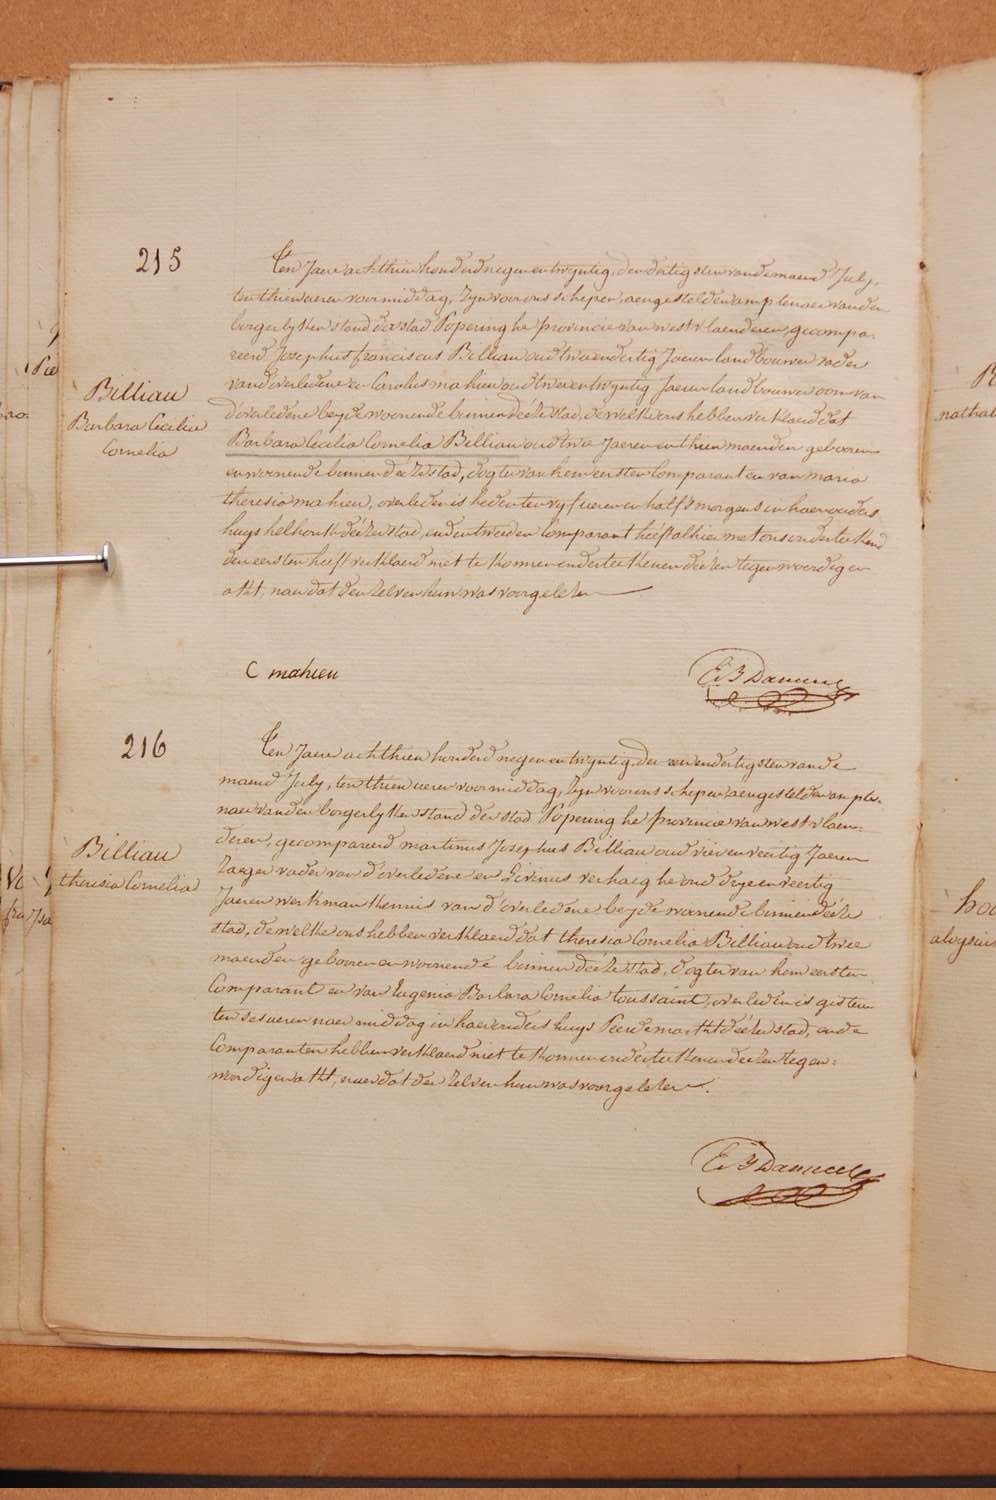 215
Ten Jaere achthien honderd negen en twyntig, den dertigsten van de maend July,
ten thien ueren voormiddag, Zyn voor ons schepen, aengestelden amptenaer van den
borgerlyken stand der stad Poperinghe provincie van westvlaenderen, gecompa-
reerd Josephus franciscus Billiau oud tweendertig Jaeren landbouwer vader
van d'overledene en Carolus mahieu oud twee en twyntig Jaeren landbouwer oom van
d'overledene beyde woonende binnen deéze stad, de welke ons hebben verklaerd dat
Billiau
Barbara Cecilia
Cornelia
Barbara Cecilia Cornelia Billiau oud twee Jaeren en thien maenden gebooren
en woonende binnen deéze stad, dogter van hem eersten Comparant en van maria
theresia mahieu, overleden is heden ten vyf ueren en half s'morgens in haer ouders
huys helhouk deézer stad, en den tweeden Comparant heeft alhier met ons onderteekend
den eersten heeft verklaerd niet te konnen onderteekenen deézen tegenwoordigen
akt, naer dat den zelven hun was voorgelezen
C mahieu
216
Ten Jaere achthien honderd negen en twyntig, den eenendertigsten van de
maend July, ten thien ueren voormiddag, Zyn voor ons schepen aengestelden ampte-
naer van den borgerlyken stand der stad Poperinghe provincie van westvlaen-
deren, gecompareerd martinus Josephus Billiau oud vier en veertig Jaeren
Billiau
theresia Cornelia
Zaeger vader van d'overledene en Livinus verhaeghe oud drye en veertig
Jaeren werkman kennis van d'overledene beyde woonende binnen deéze
stad, de welke ons hebben verklaerd dat theresia Cornelia Billiau oud twee
maenden gebooren en woonende binnen deéze stad, dogter van hem eersten
Comparant en van Eugenia Barbara Cornelia toussaint, overleden is gisteren
ten ses ueren naermiddag in haer ouders huys Peerdemarkt deézer stad, en de
Comparanten hebben verklaerd niet te konnen onderteekenen deézen tegen-
woordigen akt, naer dat den zelven hun was voorgelezen.